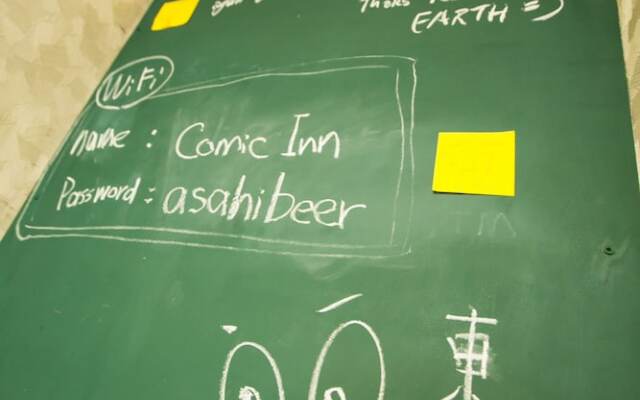 EARTH =)
WiFi
name : Comic Inn
Password : asahibeer
東